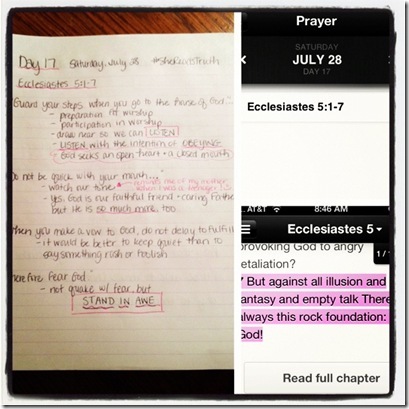 Day 17 Saturday, July 28 #SheReadsTruth
Ecclesiastes 5:1-7
Guard your steps when you go to the house of God..."
- preparation for worship
- participation in worship
- draw near so we can LISTEN
- LISTEN with the intention of OBEYING
- God seeks an open heart + a closed mouth
Do not be quick with your mouth..."
- watch our tone
reminds me of my mother when I was a teenager
- yes, God is our faithful friend + caring Father
but He is so much more, too
When you make a vow to God, do not delay to fulfill
- it would be better to keep quiet than to
say something rash or foolish
Therefore fear God."
- not quake w/ fear, but
STAND IN AWE
Prayer
SATURDAY
JULY 28
DAY 17
Ecclesiastes 5:1-7
AT&T 8:46 AM
Ecclesiastes 5
provoking God to angry
retaliation?
1/
7 But against all illusion and
fantasy and empty talk There
always this rock foundation:
God!
Read full chapter